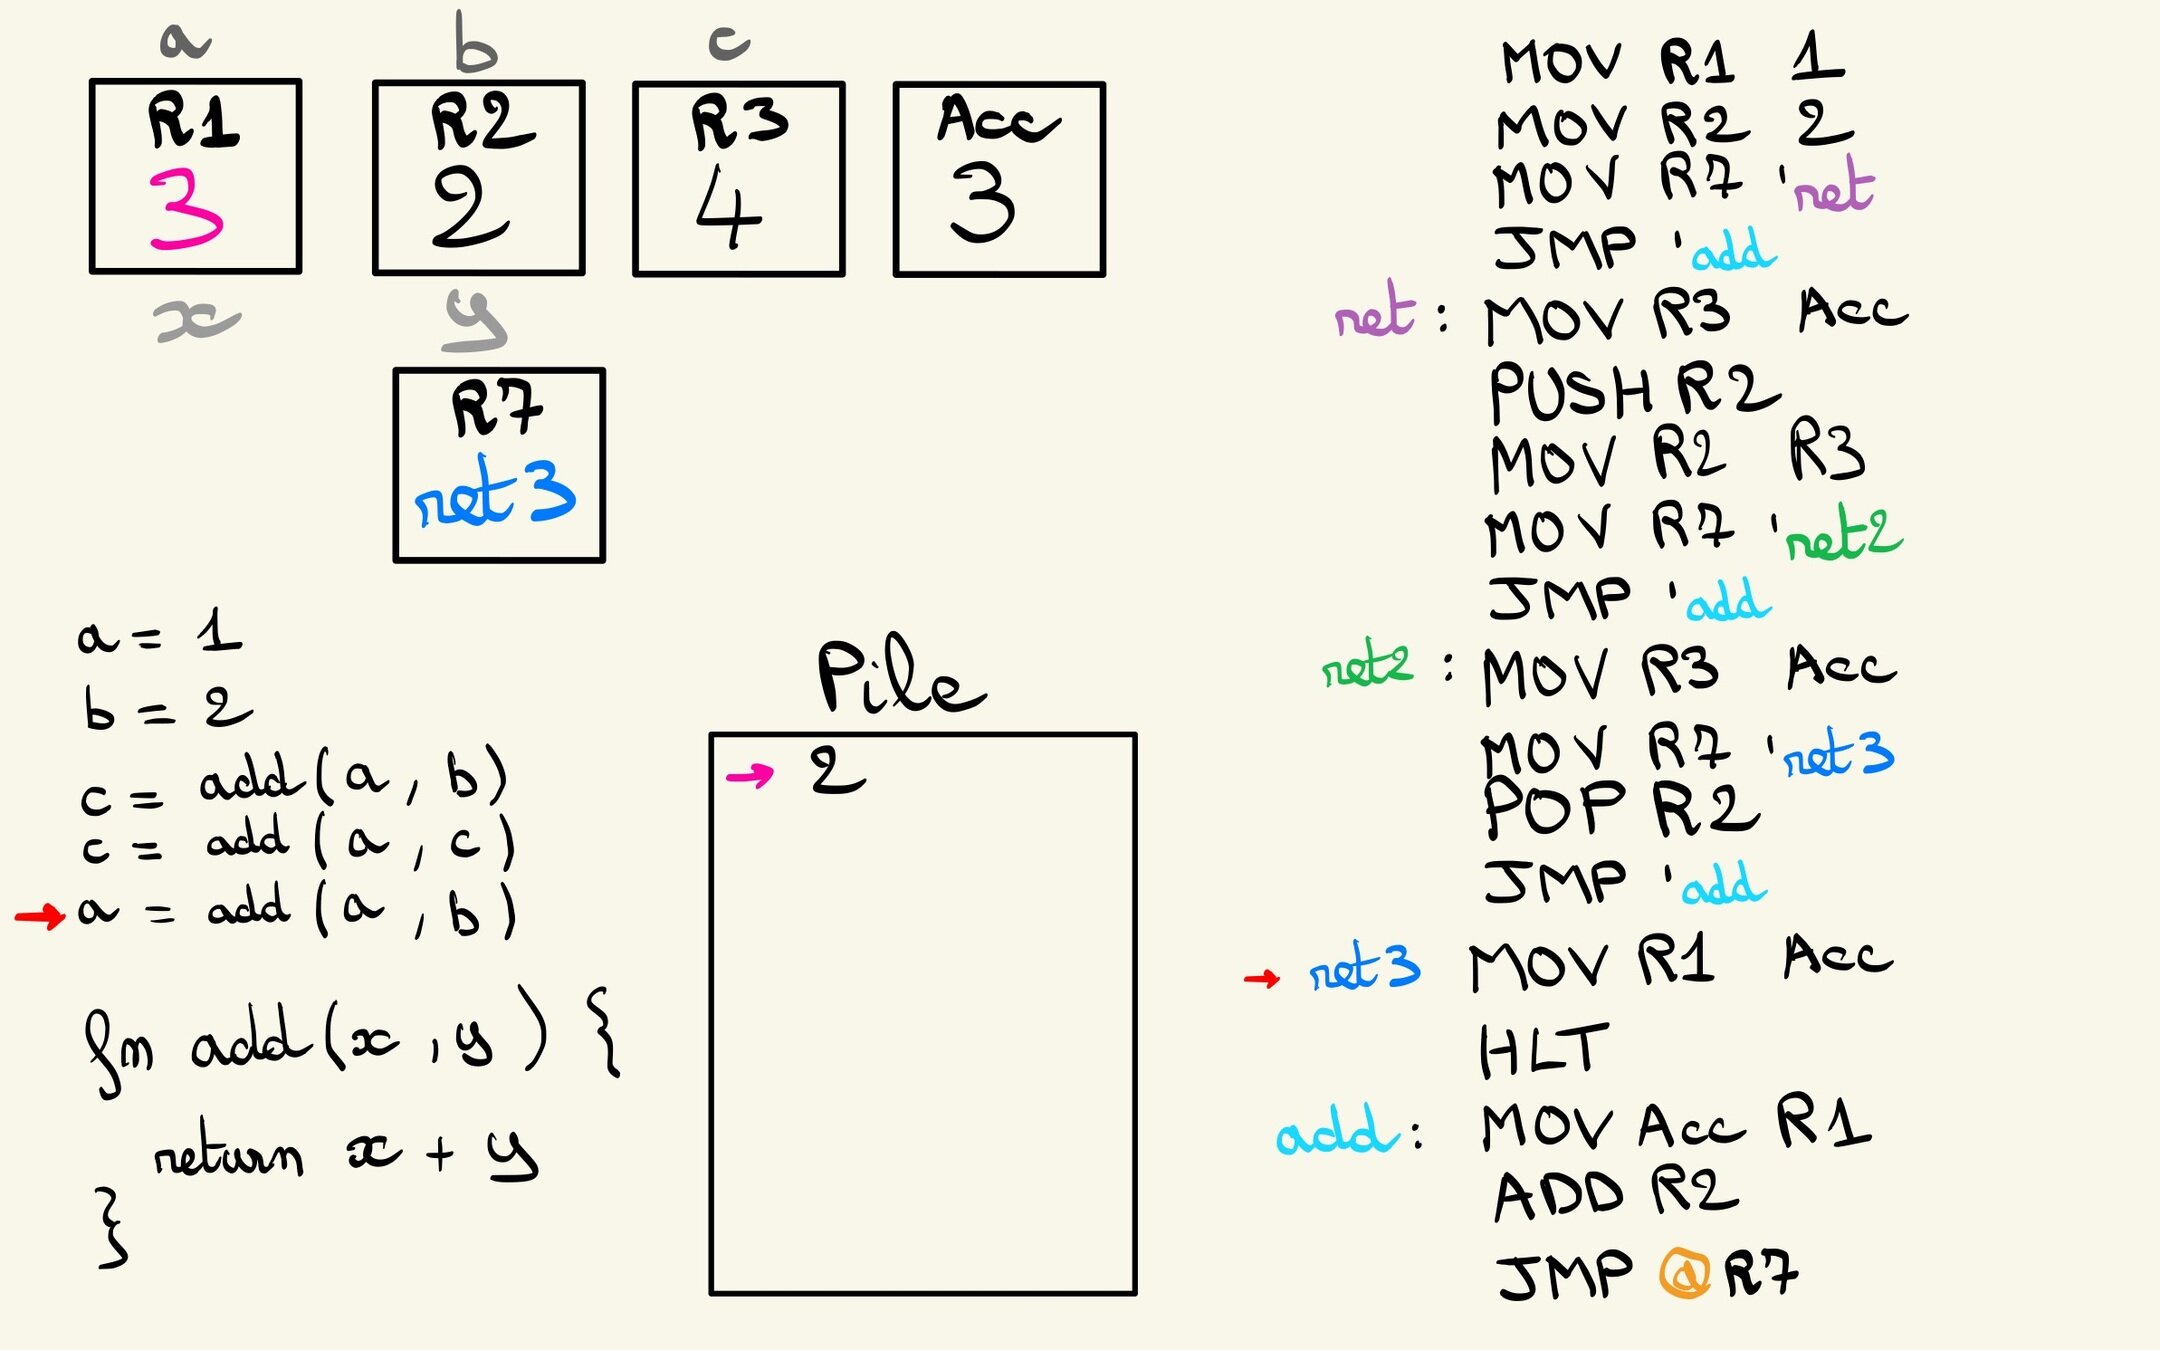 a b c
R1 R2 R3 Acc
3 2 4 3
x y
R7
ret3
a = 1
b = 2
c = add(a, b)
c = add (a, c)
→ a = add (a, b)
fn add(x, y) {
return x + y
}
Pile
→ 2
MOV R1 1
MOV R2 2
MOV R7 'ret
JMP 'add
ret : MOV R3 Acc
PUSH R2
MOV R2 R3
MOV R7 'ret2
JMP 'add
ret2 : MOV R3 Acc
MOV R7 'ret3
POP R2
JMP 'add
→ ret3 MOV R1 Acc
HLT
add : MOV Acc R1
ADD R2
JMP @R7